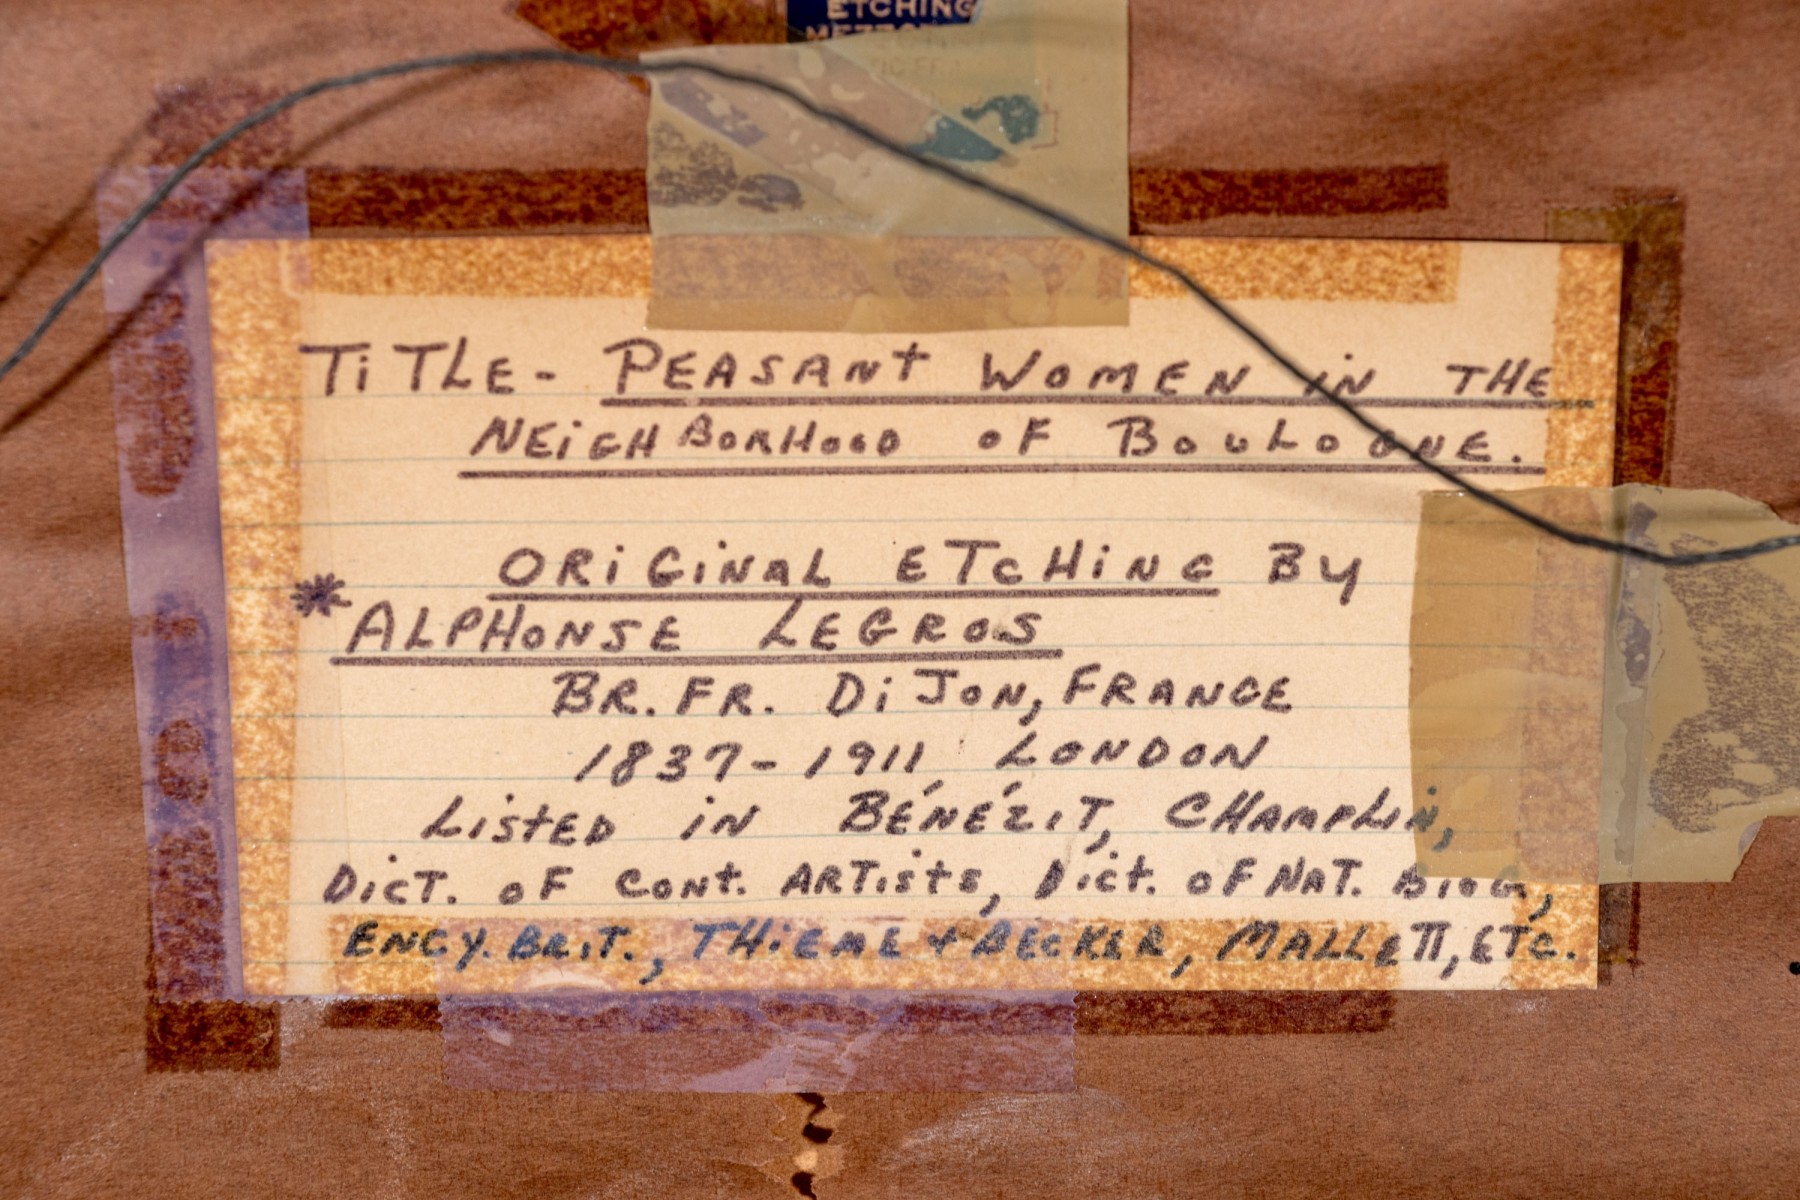 ETCHING
TiTLE- PEASANT WOMEN iN THE
NEiGHBORHOOD OF BOULOGNE.
ORiGiNAL ETCHiNG BY
* ALPHONSE LEGROS
BR. FR. DiJON, FRANCE
1837-1911, LONDON
LiSTED iN BÉNÉZIT, CHAMPLiN,
DiCT. OF CONT. ARTiSTS, DiCT. OF NAT. BIOG.,
ENCY. BRiT., THiEME + BECKER, MALLETT, ETC.